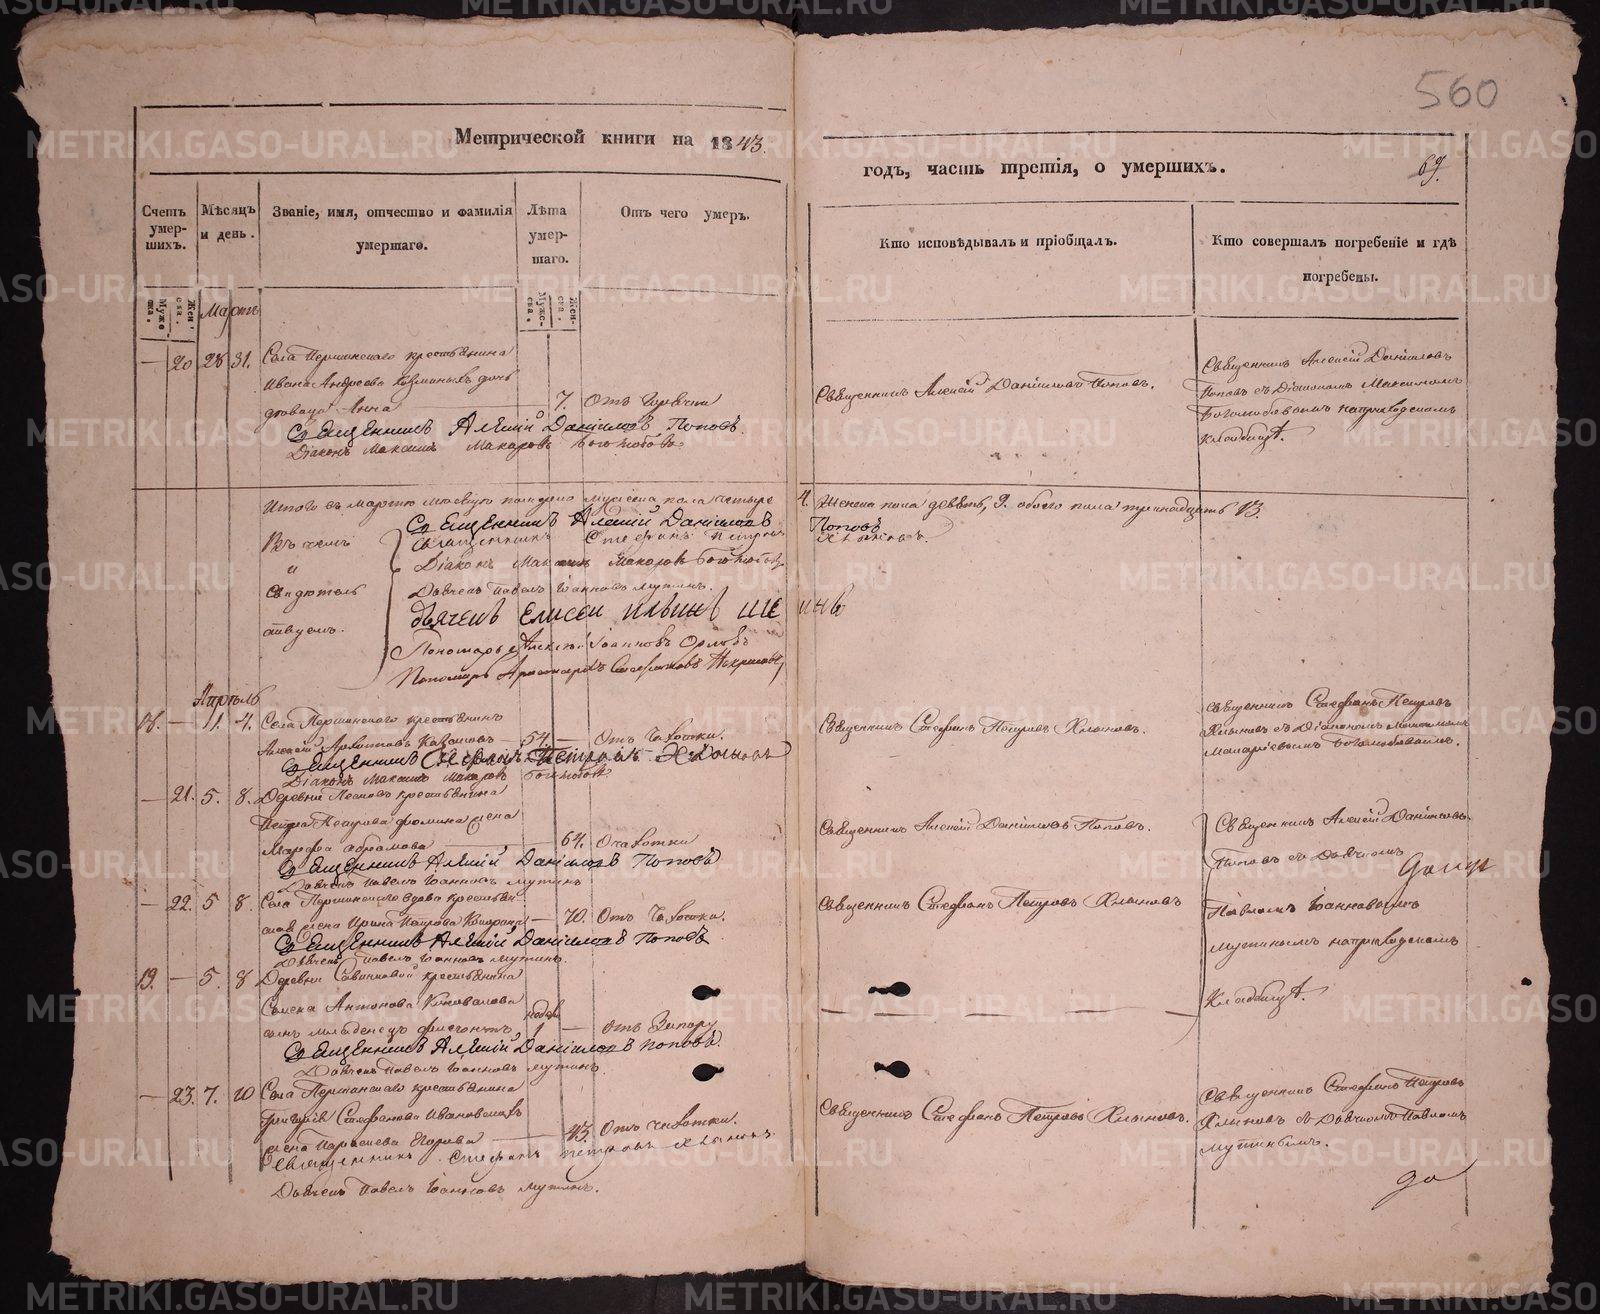 560
Метрической книги на 1843.
годъ, часть третія, о умершихъ.
69.
Счетъ умер-шихъ.
Мѣсяцъ и день.
Званіе, имя, отчество и фамилія умершаго.
Лѣта умер-шаго.
Отъ чего умеръ.
Кто исповѣдывалъ и пріобщалъ.
Кто совершалъ погребеніе и гдѣ погребены.
Муже-ска.
Жен-ска.
Мартъ
Муже-ска.
Жен-ска.
— 20 28 31. Села Першинскаго крестьянина
Ивана Андреева дочь
Анна — 7. Отъ Горячки
Священникъ Алексій Даніиловъ Поповъ.
Діаконъ Максимъ Макаровъ Боголюбовъ.
Священникъ Алексій Даніиловъ Поповъ.
Священникъ Алексій Даніиловъ
Поповъ съ Діакономъ Максимомъ
Боголюбовымъ на приходскомъ
кладбищѣ.
Итого въ Мартѣ мѣсяцѣ померло мужеска пола четыре
4. Женска пола девять, 9. обоего пола тринадцать 13.
Въ чемъ
и
свидѣтель
ствуемъ.
Священникъ Алексій Даніиловъ Поповъ
Священникъ Стефанъ Петровъ Хлыновъ.
Діаконъ Максимъ Макаровъ Боголюбовъ
Дьячекъ Павелъ Іоанновъ Мутинъ.
дьячекъ Елисей Ильинъ
Пономарь Алексѣй Іоанновъ Орловъ
Пономарь Стефановъ
Апрѣль
18. — 1. 4. Села Першинскаго крестьянинъ
Алексій — 54 — Отъ Чахотки.
Священникъ Стефанъ Петровъ Хлыновъ
Діаконъ Максимъ Макаровъ Боголюбовъ
Священникъ Стефанъ Петровъ Хлыновъ.
Священникъ Стефанъ Петровъ
Хлыновъ съ Діакономъ Максимомъ
Макаріевымъ Боголюбовымъ.
— 21. 5. 8. Деревни крестьянина
Петра Петрова Фомина жена
Марфа — 64. Отъ чахотки
Священникъ Алексій Даніиловъ Поповъ
Дьячекъ Павелъ Іоанновъ Мутинъ
Священникъ Алексій Даніиловъ Поповъ.
Священникъ Алексій Даніиловъ
Поповъ съ Дьячкомъ
Павломъ Іоанновымъ
Мутинымъ на приходскомъ
Кладбищѣ.
— 22. 5 8. Села Першинскаго вдова
жена Ирина Петрова — 70. Отъ Чахотки.
Священникъ Алексій Даніиловъ Поповъ
Дьячекъ Павелъ Іоанновъ Мутинъ.
Священникъ Стефанъ Петровъ Хлыновъ
19. — 5. 8 Деревни Савинковой крестьянина
Семена Антонова Коновалова
сынъ младенецъ недѣл 1 — отъ Запору
Священникъ Алексій Даніиловъ Поповъ.
Дьячекъ Павелъ Іоанновъ Мутинъ.
— 23. 7. 10 Села Першинскаго крестьянина
Григорія Стефанова
жена Параскева Егорова — 43. Отъ Чахотки.
Священникъ Стефанъ Петровъ Хлыновъ.
Дьячекъ Павелъ Іоанновъ Мутинъ.
Священникъ Стефанъ Петровъ Хлыновъ.
Священникъ Стефанъ Петровъ
Хлыновъ съ Дьячкомъ Павломъ
Мутинымъ.
METRIKI.GASO-URAL.RU